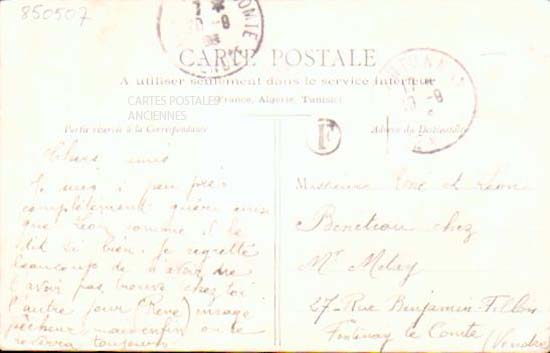 850507
CARTE POSTALE
A utiliser seulement dans le service intérieur
(France, Algérie, Tunisie)
CARTES POSTALES
ANCIENNES
Partie réservée à la Correspondance
Adresse du Destinataire
F
Chers amis
Je suis à peu près
complètement guérie ainsi
que Léon comme il le
dit si bien. Je regrette
beaucoup de
t'avoir pas trouvé chez toi
l'autre jour (René)
pêcheur mais enfin on se
reverra toujours
Messieurs René et Léon
Beneteau chez
Mr Melay
27 - Rue Benjamin-Fillon
Fontenay le Comte (Vendée)